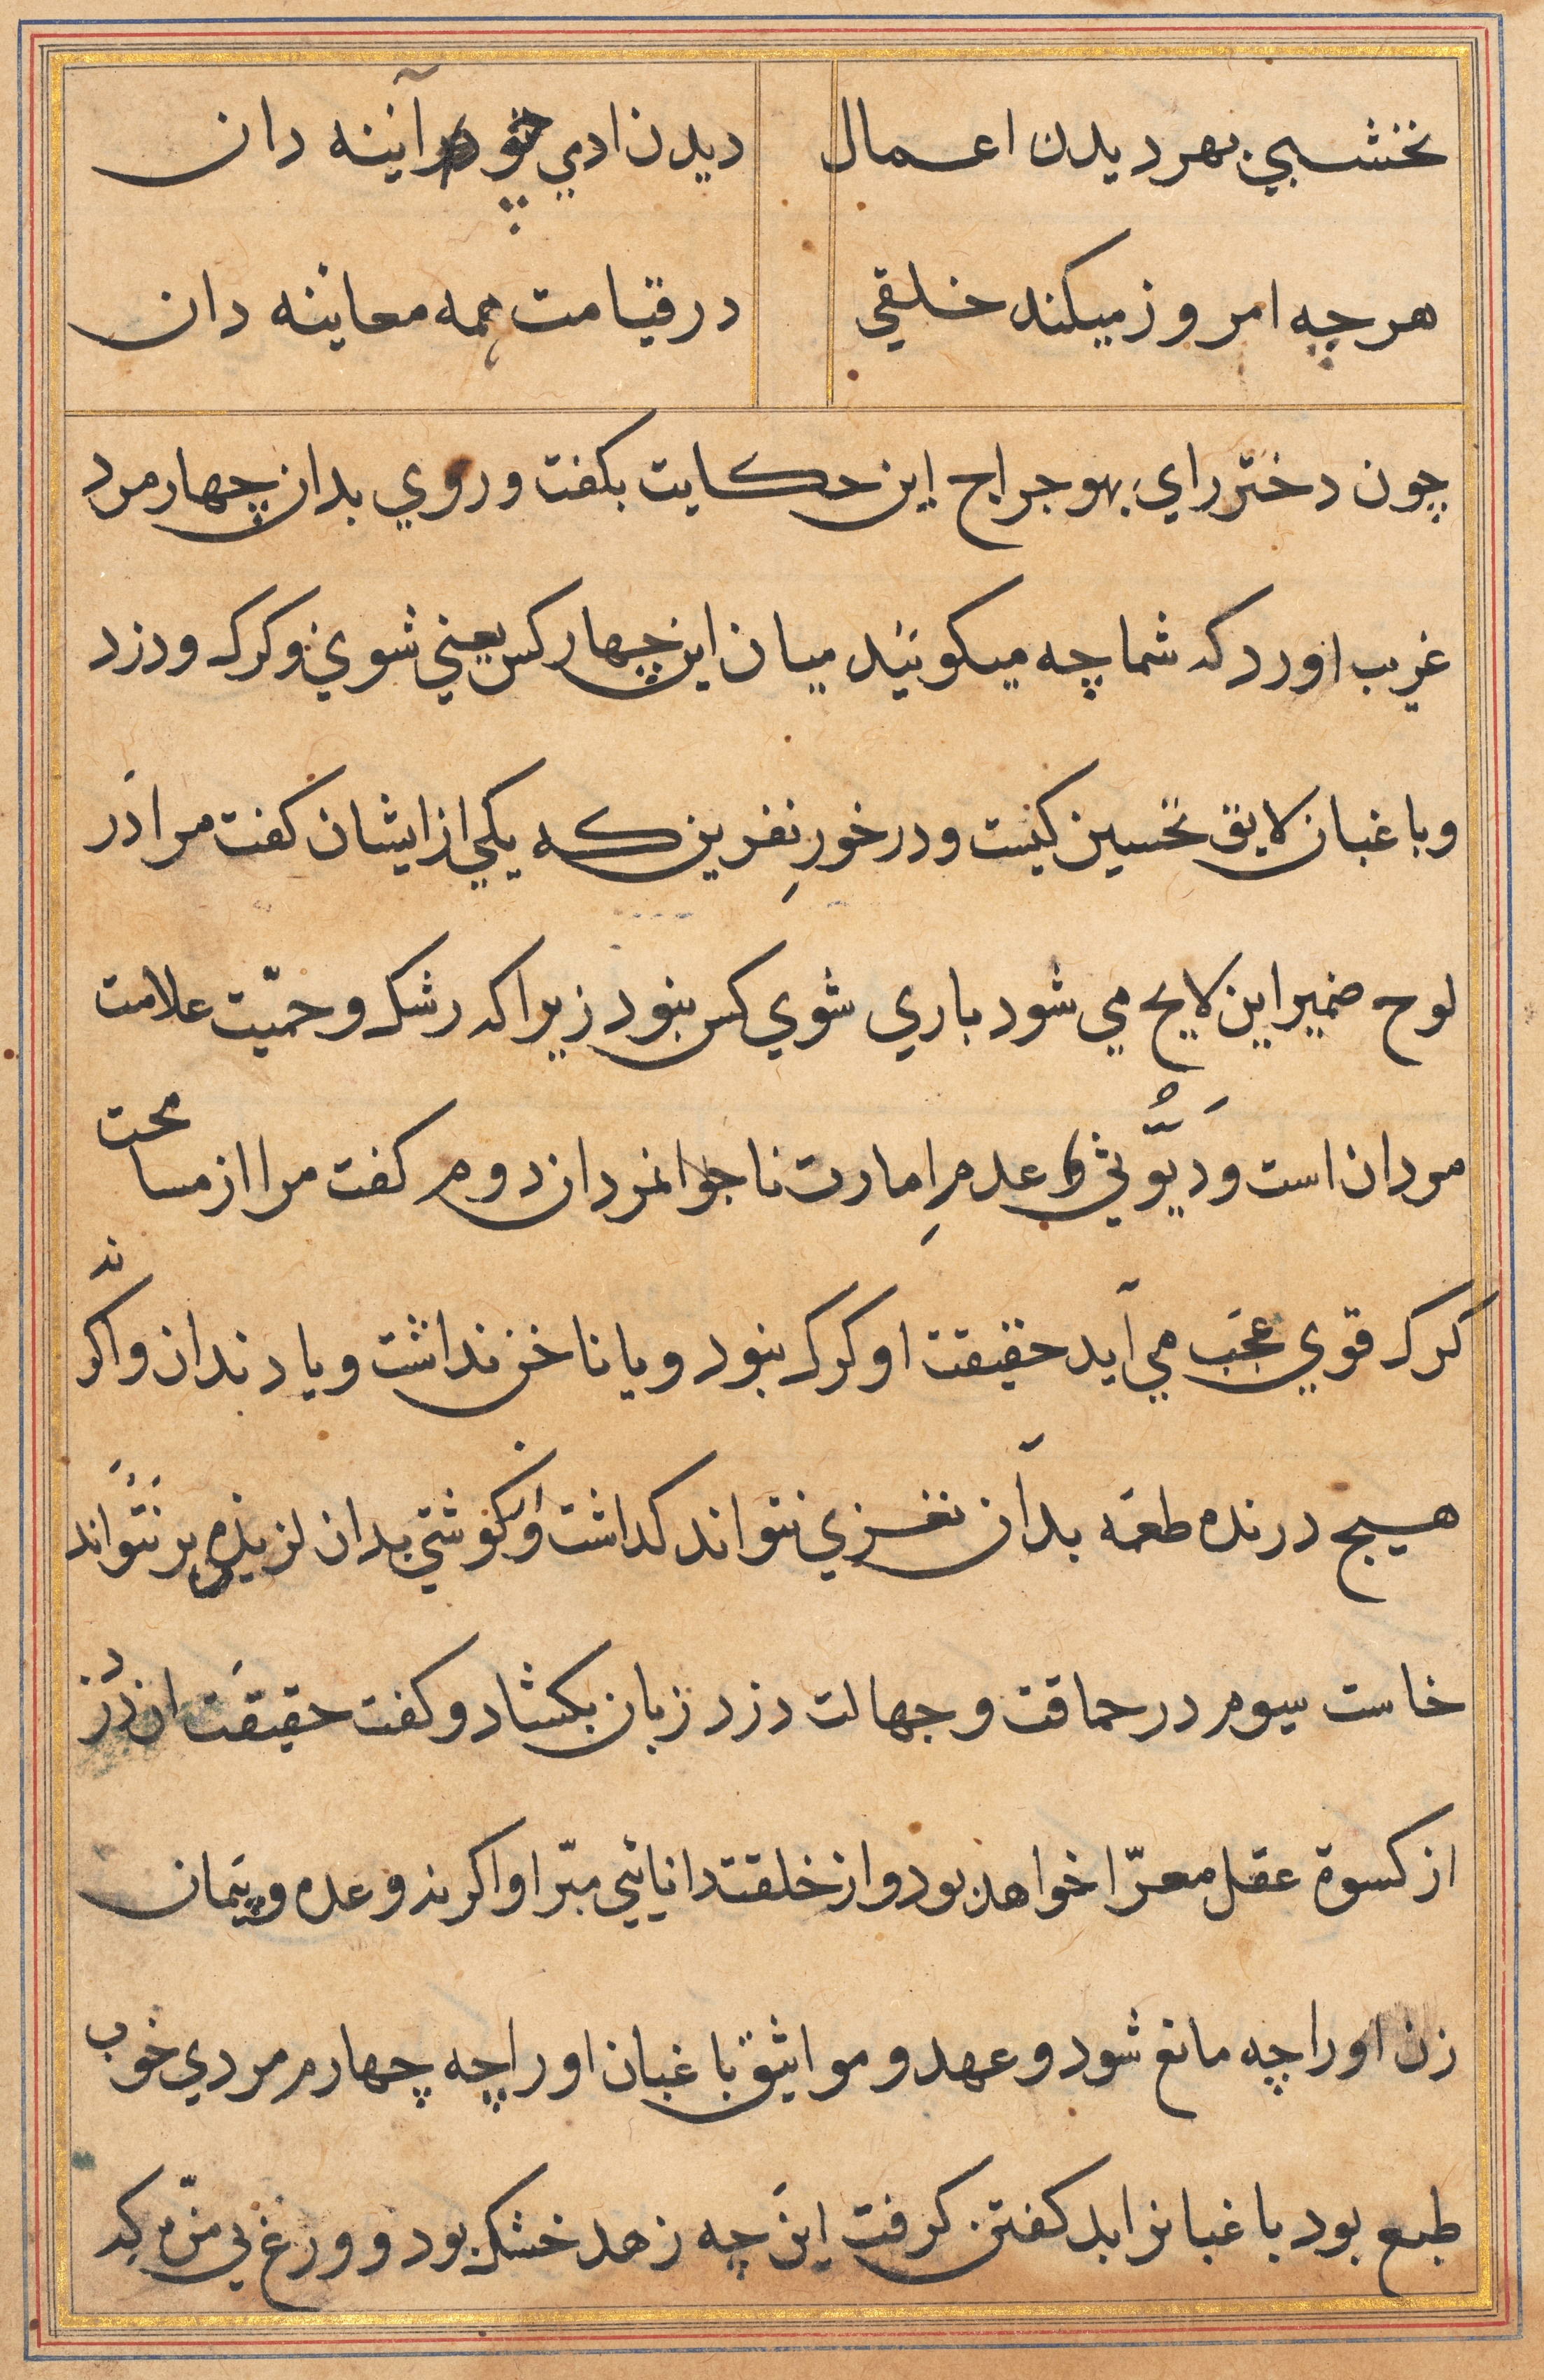 نخشبي بهر ديدن اعمال ديدن ادمي چو آئينه دان
هر چه امروز ميكند خلقي در قيامت همه معاينه دان
چون دختر راي بهوجراج اين حكايت بكفت و روي بدان چهار مرد
غريب اورد كه شما چه ميكوئيد ميان اين چهار كس يعني شوي و كرك و دزد
و باغبان لايق تحسين كيست و در خورِ نفرين كه يكي از ايشان كفت مرا دَر
لوح ضمير اين لايح مي شود باري شوي كس نبود زيرا كه رشك و حميّت علامت
مردان است وَ ديُّوثي و عدمِ امارت ناجوانمردان دوم كفت مرا از مسامحت
كرك قوي عجَب مي آيد حقيقت او كرك نبود و يا ناخن نداشت و يا دندان و اكر نه
هيچ درنده طعمَه بدان نغزي نتواند كذاشت وَ از كوشتي بدان لزيذي بر نَتَوَاند
خاست سيوم در حماقت و جهالت دزد زبان بكشاد و كفت حقيقَت ان دُزد
از كسوة عقل معرّا خواهد بود و از خلقت دانائي مبرّا و اكر نه وعده و پَيمان
زن او را چه مانع شود و عهد و مواثيق باغبان او را چه چهارم مردي خوب
طبع بود باغبانرا بد كفتن كرفت اينَ چه زهد خشك بود و ورع بي مزّه كه